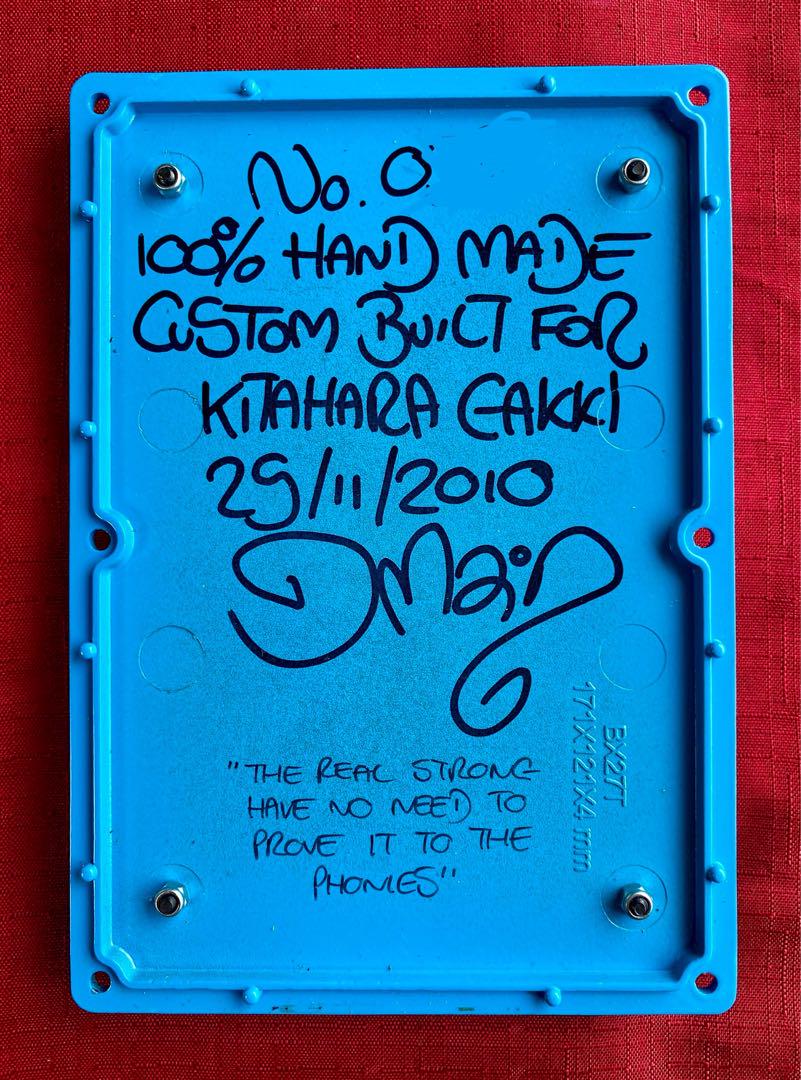 No. 0
100% HAND MADE
CUSTOM BUILT FOR
KITAHARA GAKKI
29/11/2010
DMain
"THE REAL STRONG
HAVE NO NEED TO
PROVE IT TO THE
PHONIES"
BX27T
171X121X4 mm